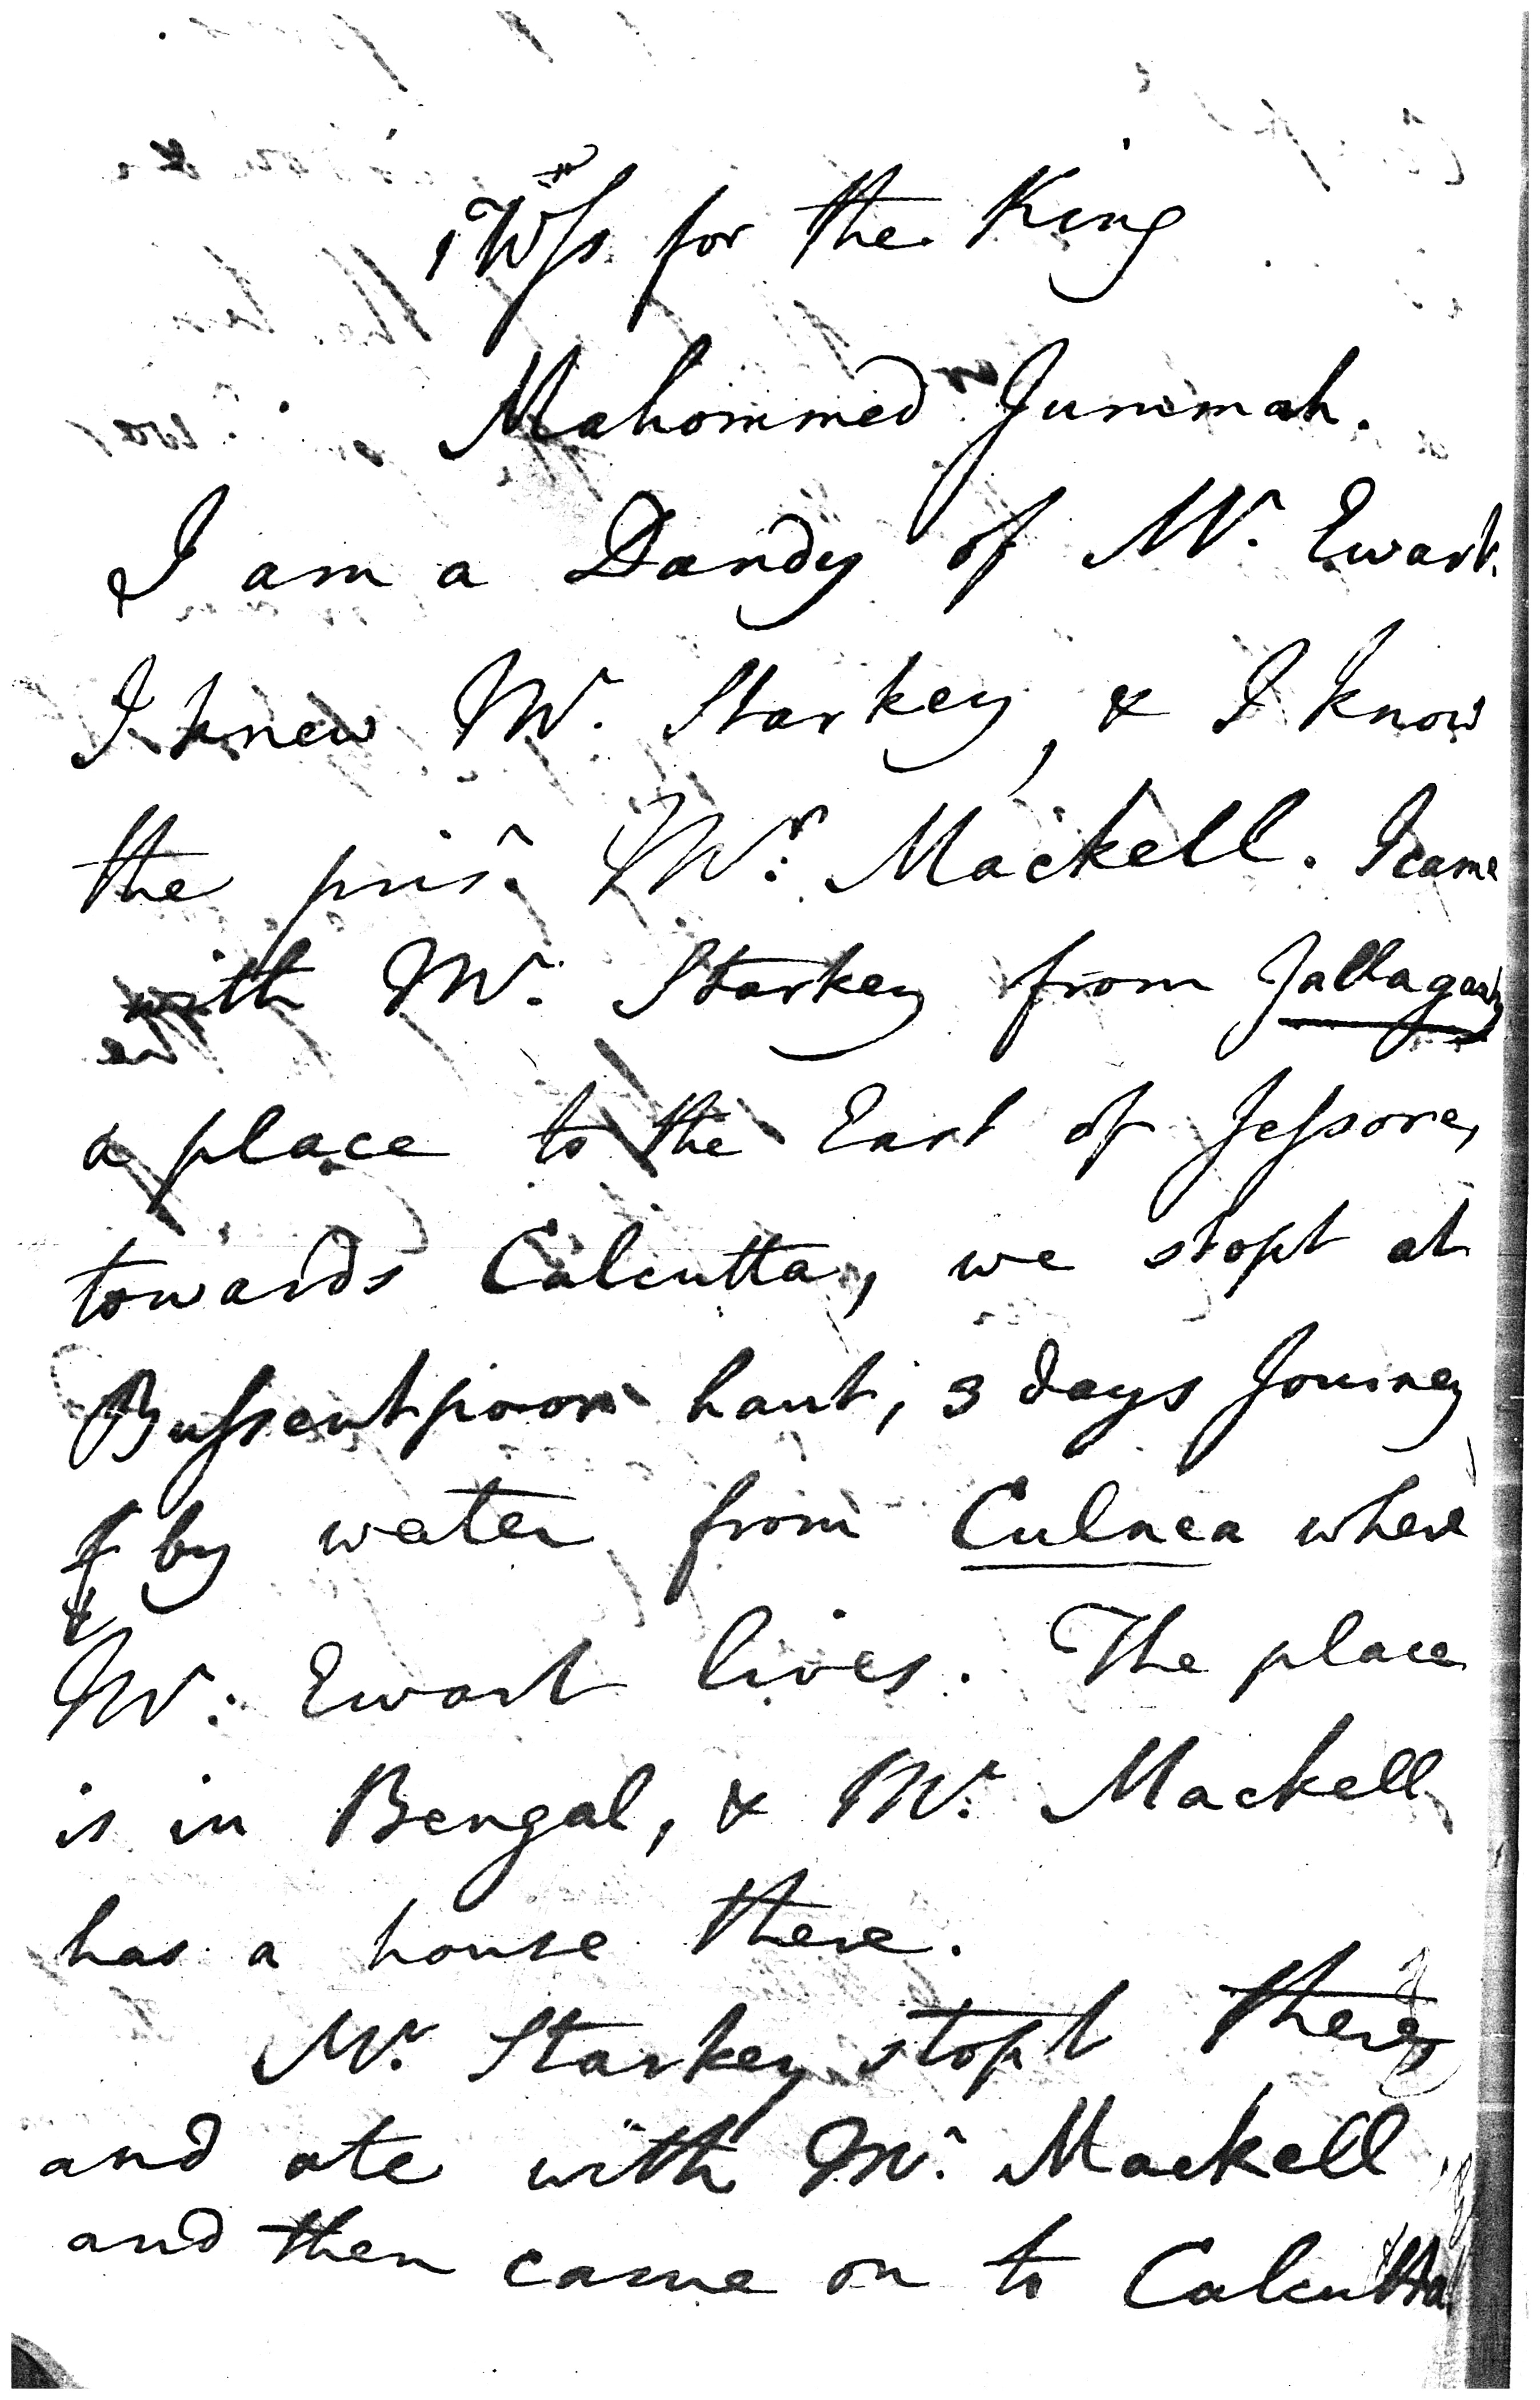 Wss for the King
Mahommed Jummah.
I am a Dandy of Mr. Ewart.
I knew Mr. Starkey, & I know
the prisr. Mr. Mackell. I came
with Mr. Starkey from
a place to the East of Jessore,
towards Calcutta, we stopt at
haut, 3 days Journey
by water from Culnea where
Mr. Ewart lives. The place
is in Bengal, & Mr. Mackell
has a house there.
Mr. Starkey stopt there
and ate with Mr. Mackell
and then came on to Calcutta